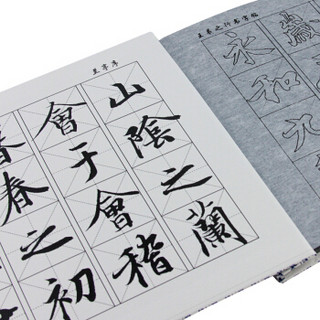 兰亭序
暮春之初
會于會稽
山陰之蘭
王羲之行书字帖
永和九
歲